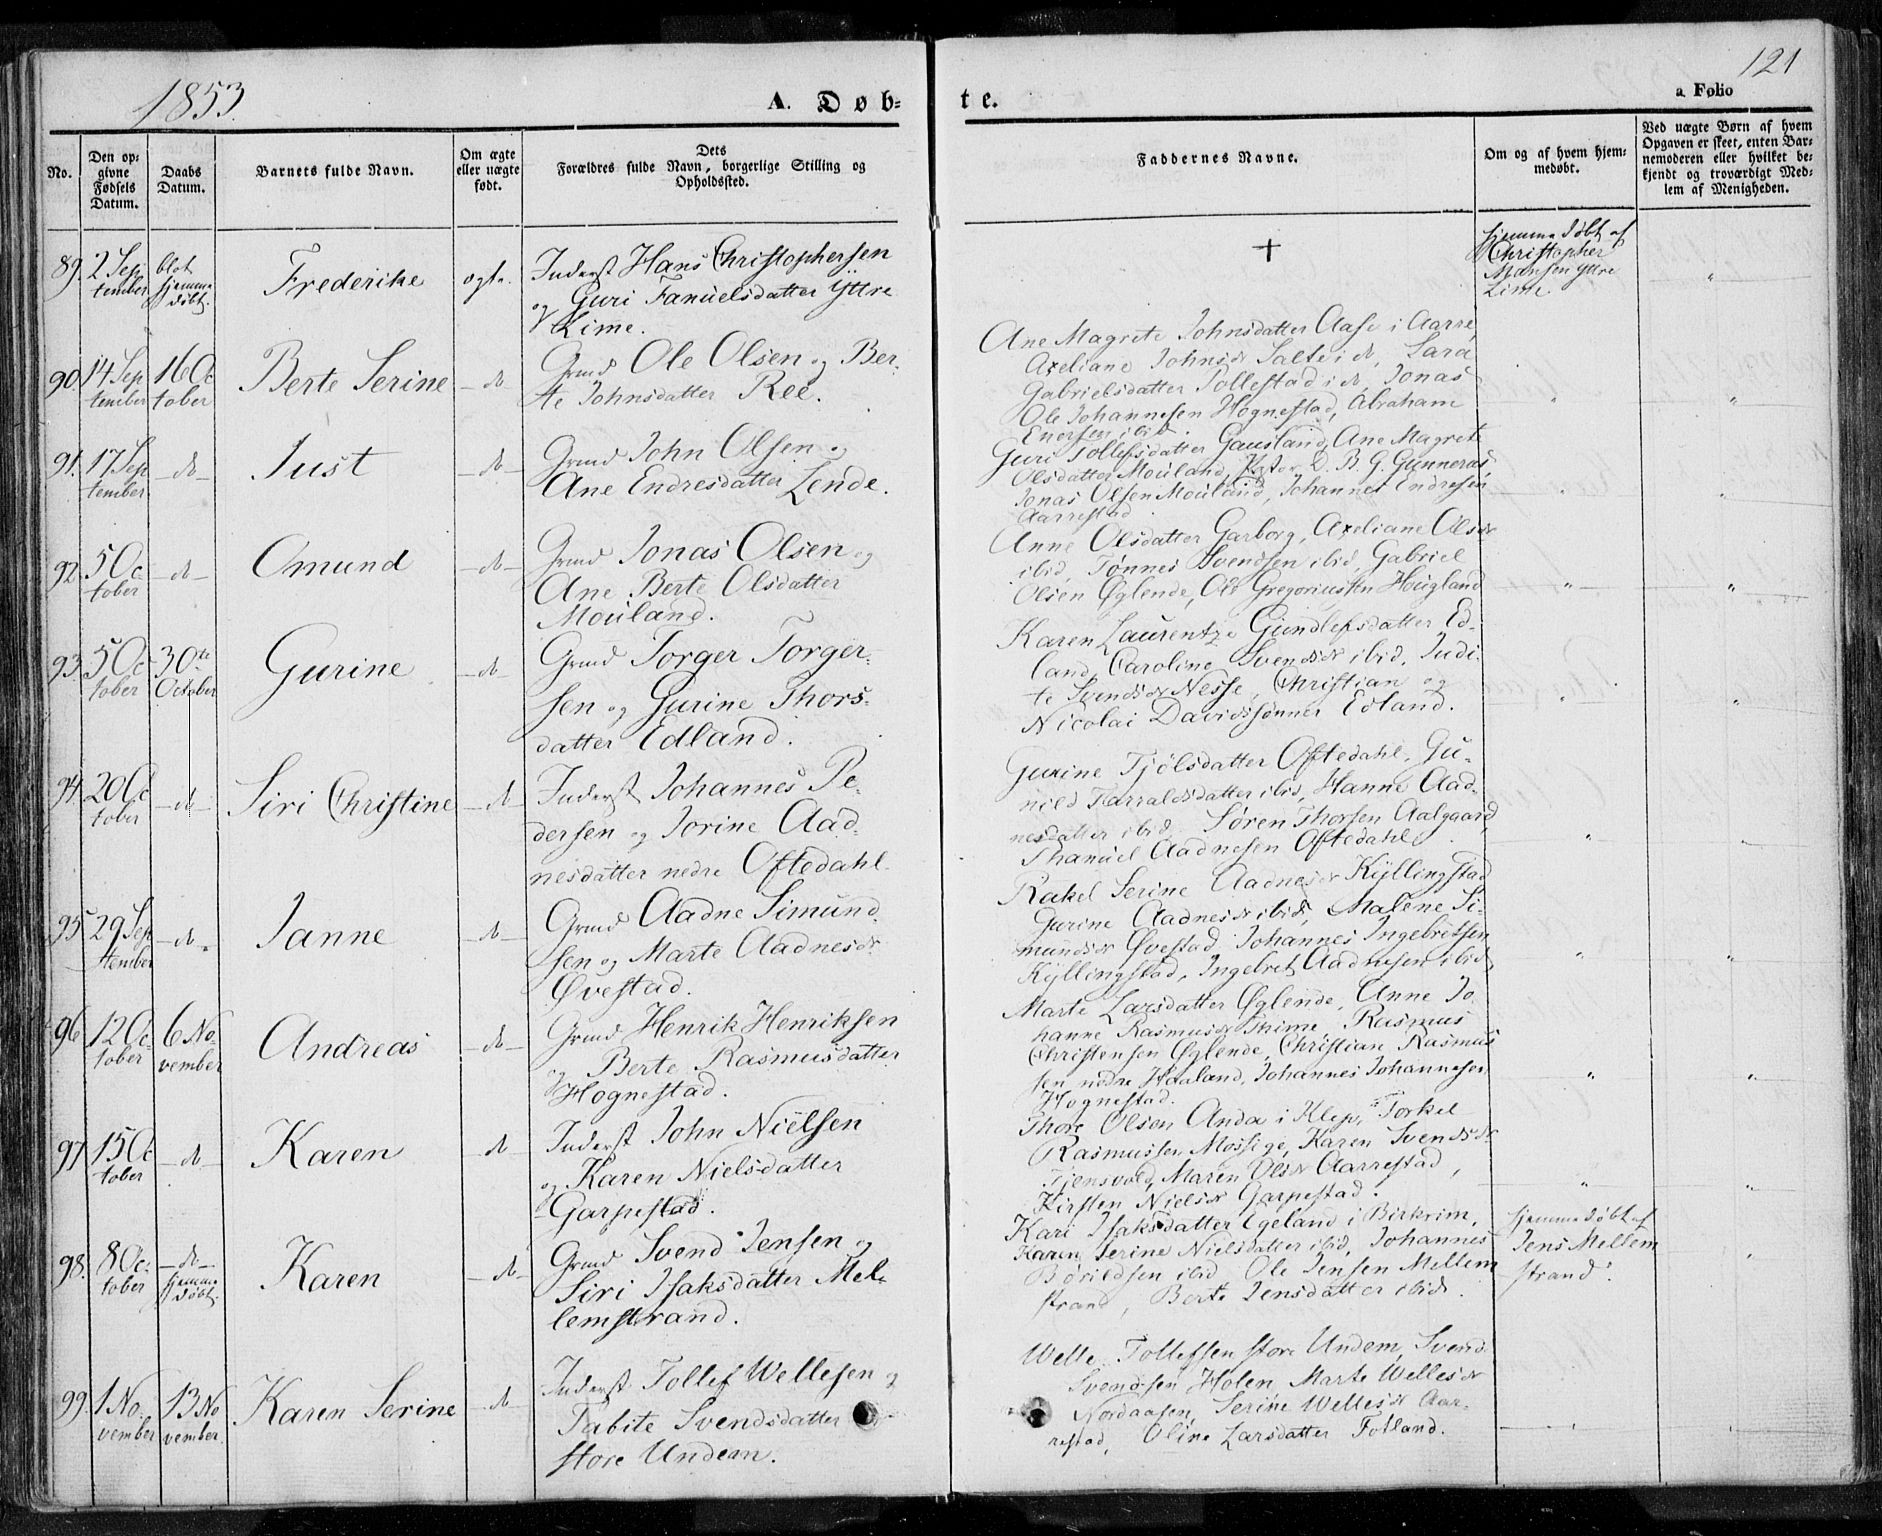 1853.
A. Døb-
te.
121
a. Folio
No.
Den op-
givne
Fødsels
Datum.
Daabs
Datum.
Barnets fulde Navn.
Om ægte
eller uægte
født.
Dets
Forældres fulde Navn, borgerlige Stilling og
Opholdssted.
Faddernes Navne.
Om og af hvem hjem-
medøbt.
Ved uægte Børn af hvem
Opgaven er skeet, enten Bar-
nemoderen eller hvilket be-
kjendt og troværdigt Med-
lem af Menigheden.
89. 2 Sep
tember
blot
hjemme
døbt.
Frederike
ægte.
Inderst Hans Christophersen
og Guri Fanuelsdatter Yttre
Lime.
+
hjemmedøbt af
Christopher
Hansen Yttre
Lime
90. 14 Sep
tember
16 Oc
tober
Berte Serine
do
Grmd Ole Olsen og Ber-
te Johnsdatter Ree.
Ane Magrete Johnsdatter Aase i Aarre,
Axeliane Johnsdr Salte i do, Sara
Gabrielsdatter Pollestad i do, Jonas
Ole Johannesen Hognestad, Abraham
Enersen ibid.
91. 17 Sep
tember
do
Just
do
Grmd John Olsen og
Ane Endresdatter Lende.
Guri Tollefsdatter Gausland, Ane Magrete
Olsdatter Mouland, D. B. G. Gunneras
Jonas Olsen Mouland, Johannes Endresen
Aarrestad
92. 5 Oc
tober
do
Omund
do
Grmd Jonas Olsen og
Ane Berte Olsdatter
Mouland.
Anne Olsdatter Garborg, Axeliane Olsdr
ibid, Tønnes Svendsen ibid, Gabriel
Olsen Øglende, Ole Gregoriussen Hougland
93. 5 Oc
tober
30te
October
Gurine
do
Grmd Torger Torger-
sen og Gurine Thors-
datter Edland.
Karen Laurentze Gundlefsdatter Ed-
land, Caroline Svendsdr ibid, Judi-
te Svendsdr Nesse, Christian og
Nicolai Davidsønner Edland.
94. 20 Oc
tober
do
Siri Christine
do
Inderst Johannes Pe-
dersen og Jorine Aad-
nesdatter nedre Oftedahl.
Gurine Tjølsdatter Oftedahl, Gu-
nild Harraldsdatter ibid, Hanne Aad-
nesdatter ibid, Søren Thorsen Aalgaard,
Thanuel Aadnesen Oftedahl.
95. 29 Sep
tember
do
Janne
do
Grmd Aadne Simund-
sen og Marte Aadnesdr
Øvestad.
Rakel Serine Aadnesdr Kyllingstad
Gurine Aadnesdr ibid, Malene Si-
mundsdr Øvestad, Johannes Ingebretsen
Kyllingstad, Ingebret Aadnesen ibid,
96. 12 Oc
tober
6 No-
vember
Andreas
do
Grmd Henrik Henriksen
og Berte Rasmusdatter
Hognestad.
Marte Larsdatter Øglende, Anne Jo-
hanne Rasmusdr Thime, Rasmus
Christensen Øglende, Christian Rasmus
sen nedre Haaland, Johannes Johannesen
Hognestad.
97. 15 Oc
tober
do
Karen
do
Inderst John Nielsen
og Karen Nielsdatter
Garpestad.
Thore Olsen Anda i Klep, Torkel
Rasmussen Mossige, Karen Svendsdr
Tjensvold, Maren Olsdr Aarrestad,
Kirsten Nielsdr Garpestad.
98. 8 Oc-
tober
do
hjemme
døbt.
Karen
do
Grmd Svend Jensen og
Siri Isaksdatter Mel-
lemstrand.
Kari Isaksdatter Egeland i Birkrim,
Karen Serine Nielsdatter ibid, Johannes
Børildsen ibid, Ole Jensen Mellem
strand, Berte Jensdatter ibid.
hjemmedøbt af
Jens Mellem
strand.
99. 1 No-
vember
13 No
vember.
Karen Serine
do
Inderst Tollef Wellesen og
Tabite Svendsdatter
store Undem.
Welle Tollefsen store Undem, Svend
Svendsen Holen, Marte Wellesdr
Nordaasen, Serine Wellesdr Aar-
restad, Oline Larsdatter Fotland.